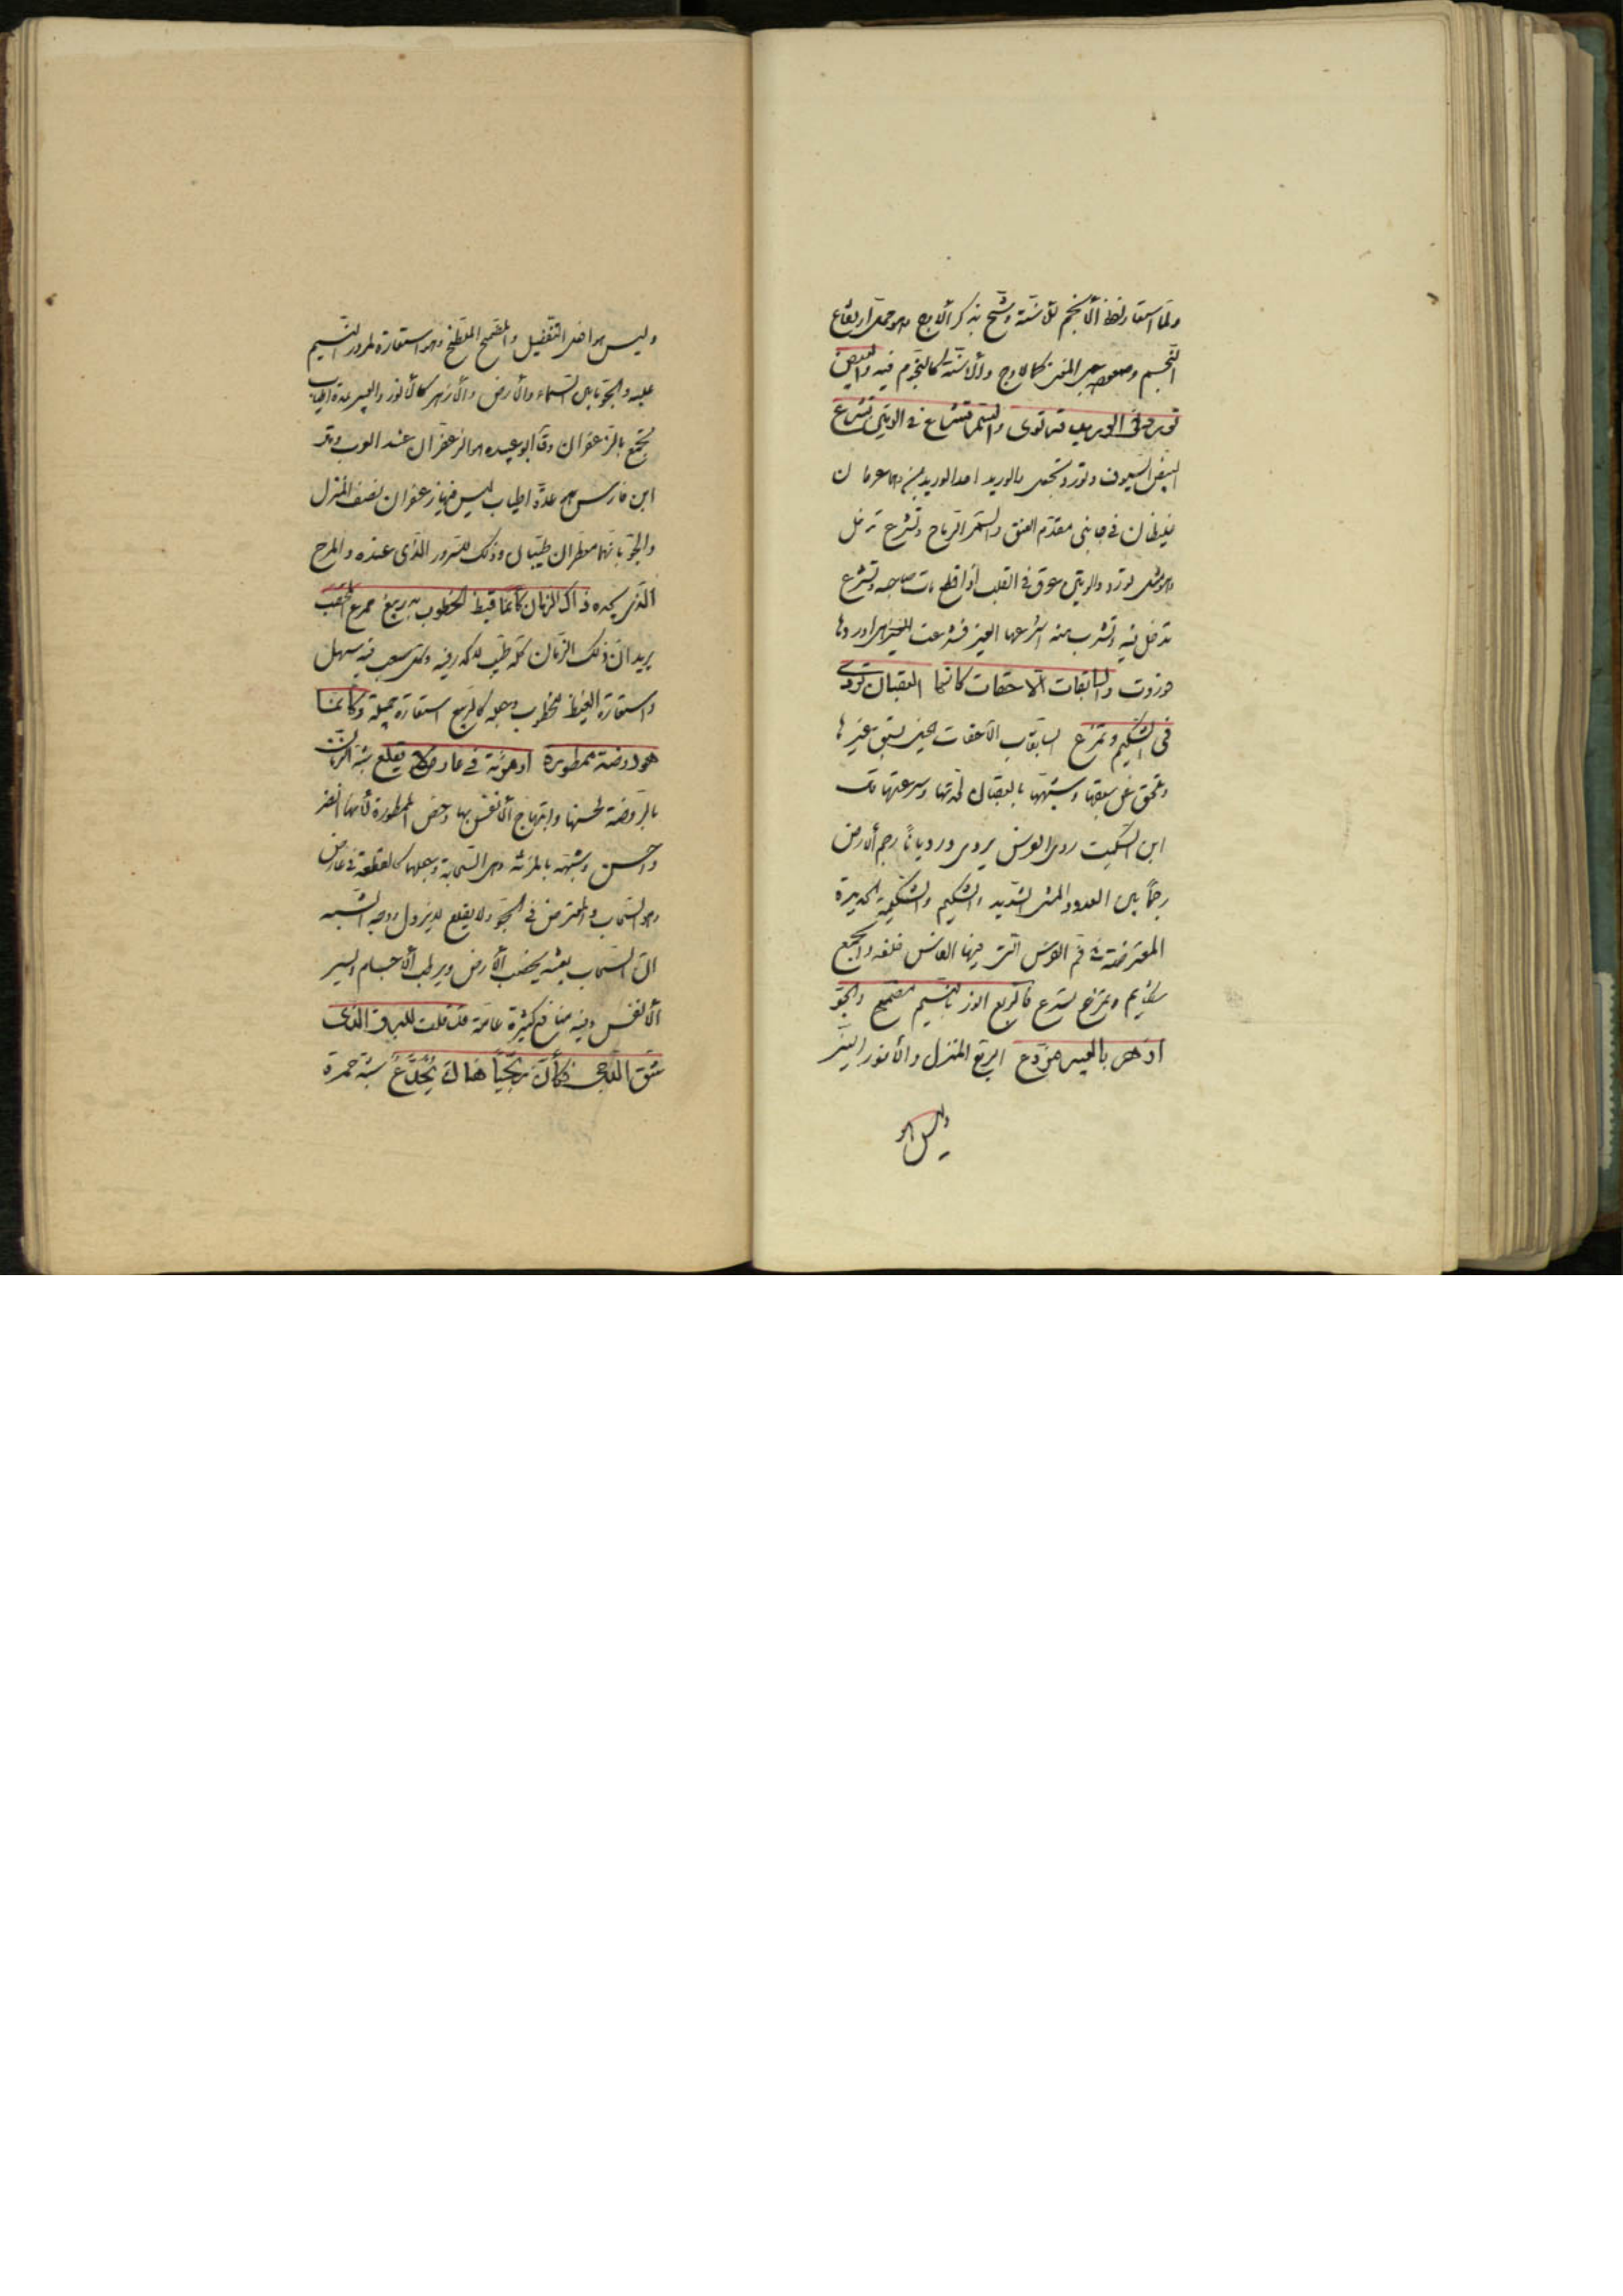 ولما استعار لفظ الأنجم للأسنة رشح بذكر الأوج وهو محل ارتفاع
النجم وصعوده المغنى كالاوج والأسنة كالنجوم فيه والبيض
تورد في الوريد فترتوى والسمر تشرع في الوتين فتشرع
البيض السيوف وتورد تجعل بالوريد احد الوريدين وهما عرقان
غليظان في جانبي مقدم العنق والسمر الرماح وتشرع تدخل
وهو مثل تورد والوتين عرق في القلب اذا قطع مات صاحبه وتشرع
تدخل فيه وتشرب منه اشرعها الغير فشرعت الغير اوردها
فوردت والسابقات اللاحقات كأنها العقبان تردى
في الشكيم وتمزع السابقات اللاحقات الخيل تسبق غيرها
وتلحق من سبقها وشبهها بالعقبان لخفتها وسرعتها قال
ابن السكيت ردى الفرس يردى رديانا رجم الأرض
رجما بين العدو والمشي الشديد والشكيم والشكيمة الحديدة
المعترضة في فم الفرس التي فيها الفاس خلفه والجمع
شكايم وتمزع تسرع فالربع انور بالنسيم مضمخ والجو
ازهر بالعبير مردع الربع المنزل والأنور النير
وليس هو
وليس هو افعل التفضيل والمضمخ الملطخ وهو استعارة لمرور النسيم
عليه والجو ما بين السماء والأرض والأزهر كالأنور والعبير عدة اطياب
تجمع بالزعفران وقال ابو عبيده هو الزعفران عند العرب وقال
ابن فارس هو عدة اطياب ليس فيها زعفران يصف المنزل
والجو بانهما معطران طيبان وذلك للسرور الذي عنده والمرح
الذي يجده ذاك الزمان كأنما قيظ الخطوب به ربيع ممرع
يريد ان ذلك الزمان كله طيب لدكه فيه وكل صعب فيه سهل
واستعارة القيظ للخطوب وجعله كالربيع استعارة جميلة وكأنما
هو روضة ممطورة او مزنة في عارض لا يقلع شبه الزمان
بالروضة لحسنها وابتهاج الأنفس بها وخص الممطورة لأنها انضر
واحسن وشبهه بالمزنة وهى السحابة وجعلها كالقطعة في عارض
وهو السحاب والمعترض في الجو ولا يقلع لا يزول ووجه الشبه
ان السحاب بغيثه يخصب الأرض ويرطب الأجسام ويسر
الأنفس وفيه منافع كثيرة عامة قد قلت للبرق الذى
شق الدجى فكأن زنجيا هناك يجدع شبه حمرة